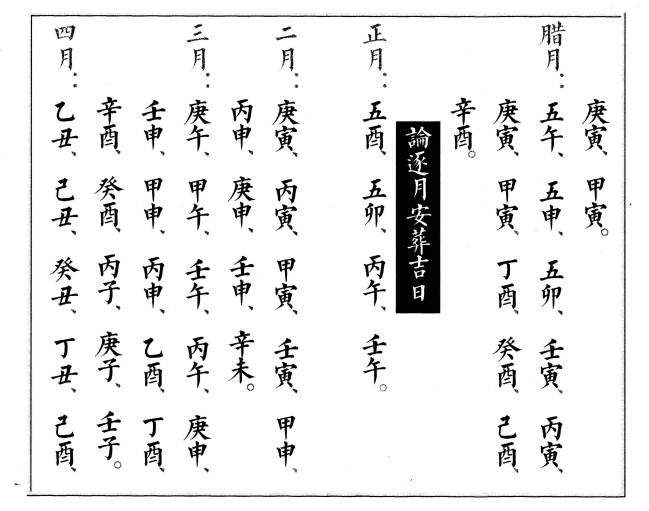 庚寅、甲寅。
腊月：五午、五申、五卯、壬寅、丙寅、
庚寅、甲寅、丁酉、癸酉、己酉、
辛酉。
論逐月安葬吉日
正月：五酉、五卯、丙午、壬午。
二月：庚寅、丙寅、甲寅、壬寅、甲申、
丙申、庚申、壬申、辛未。
三月：庚午、甲午、壬午、丙午、庚申、
壬申、甲申、丙申、乙酉、丁酉、
辛酉、癸酉、丙子、庚子、壬子。
四月：乙丑、己丑、癸丑、丁丑、己酉、